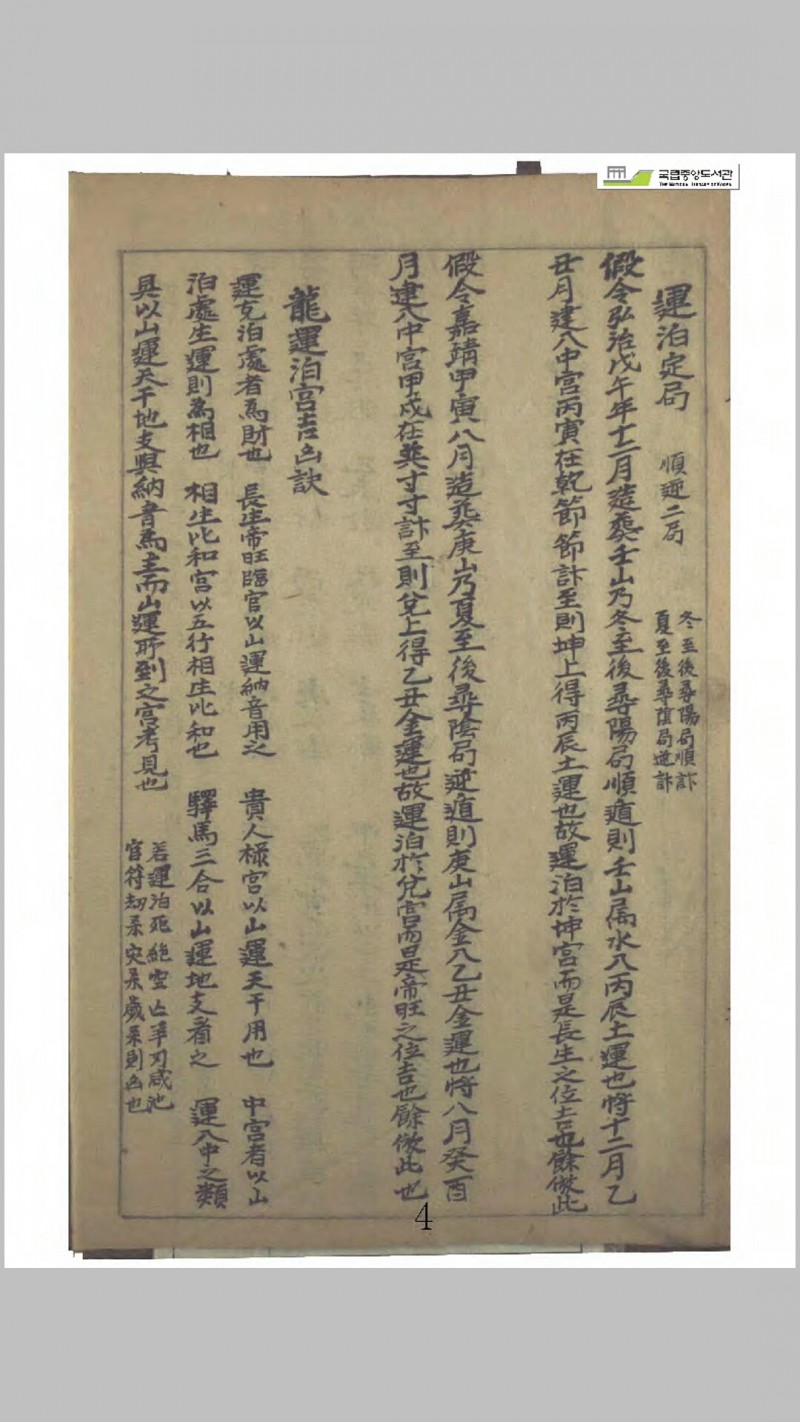 국립중앙도서관
THE NATIONAL LIBRARY OF KOREA
運泊定局 順逆二局 冬至後尋陽局順計
夏至後尋陰局逆計
假令弘治戊午年十二月造葬壬山乃冬至後尋陽局順遁則壬山属水入丙辰土運也將十二月乙
丑月建入中宮丙寅在乾節節計至則坤上得丙辰土運也故運泊於坤宮而是長生之位吉也餘倣此
假令嘉靖甲寅八月造葬庚山乃夏至後尋陰局逆遁則庚山属金入乙丑金運也將八月癸酉
月建入中宮甲戌在巽寸寸計至則兌上得乙丑金運也故運泊於兌宮而是帝旺之位吉也餘倣此也
龍運泊宮吉凶訣
運克泊處者為財也 長生帝旺臨官以山運納音用之 貴人祿宮以山運天干用也 中宮者以山
泊處生運則為相也 相生比和宮以五行相生比和也 驛馬三合以山運地支看之 運入中之類
具以山運天干地支與納音為主而山運所到之宮考見也 若運泊死絶空亡羊刃咸池
官符劫杀灾杀歲杀則凶也
4